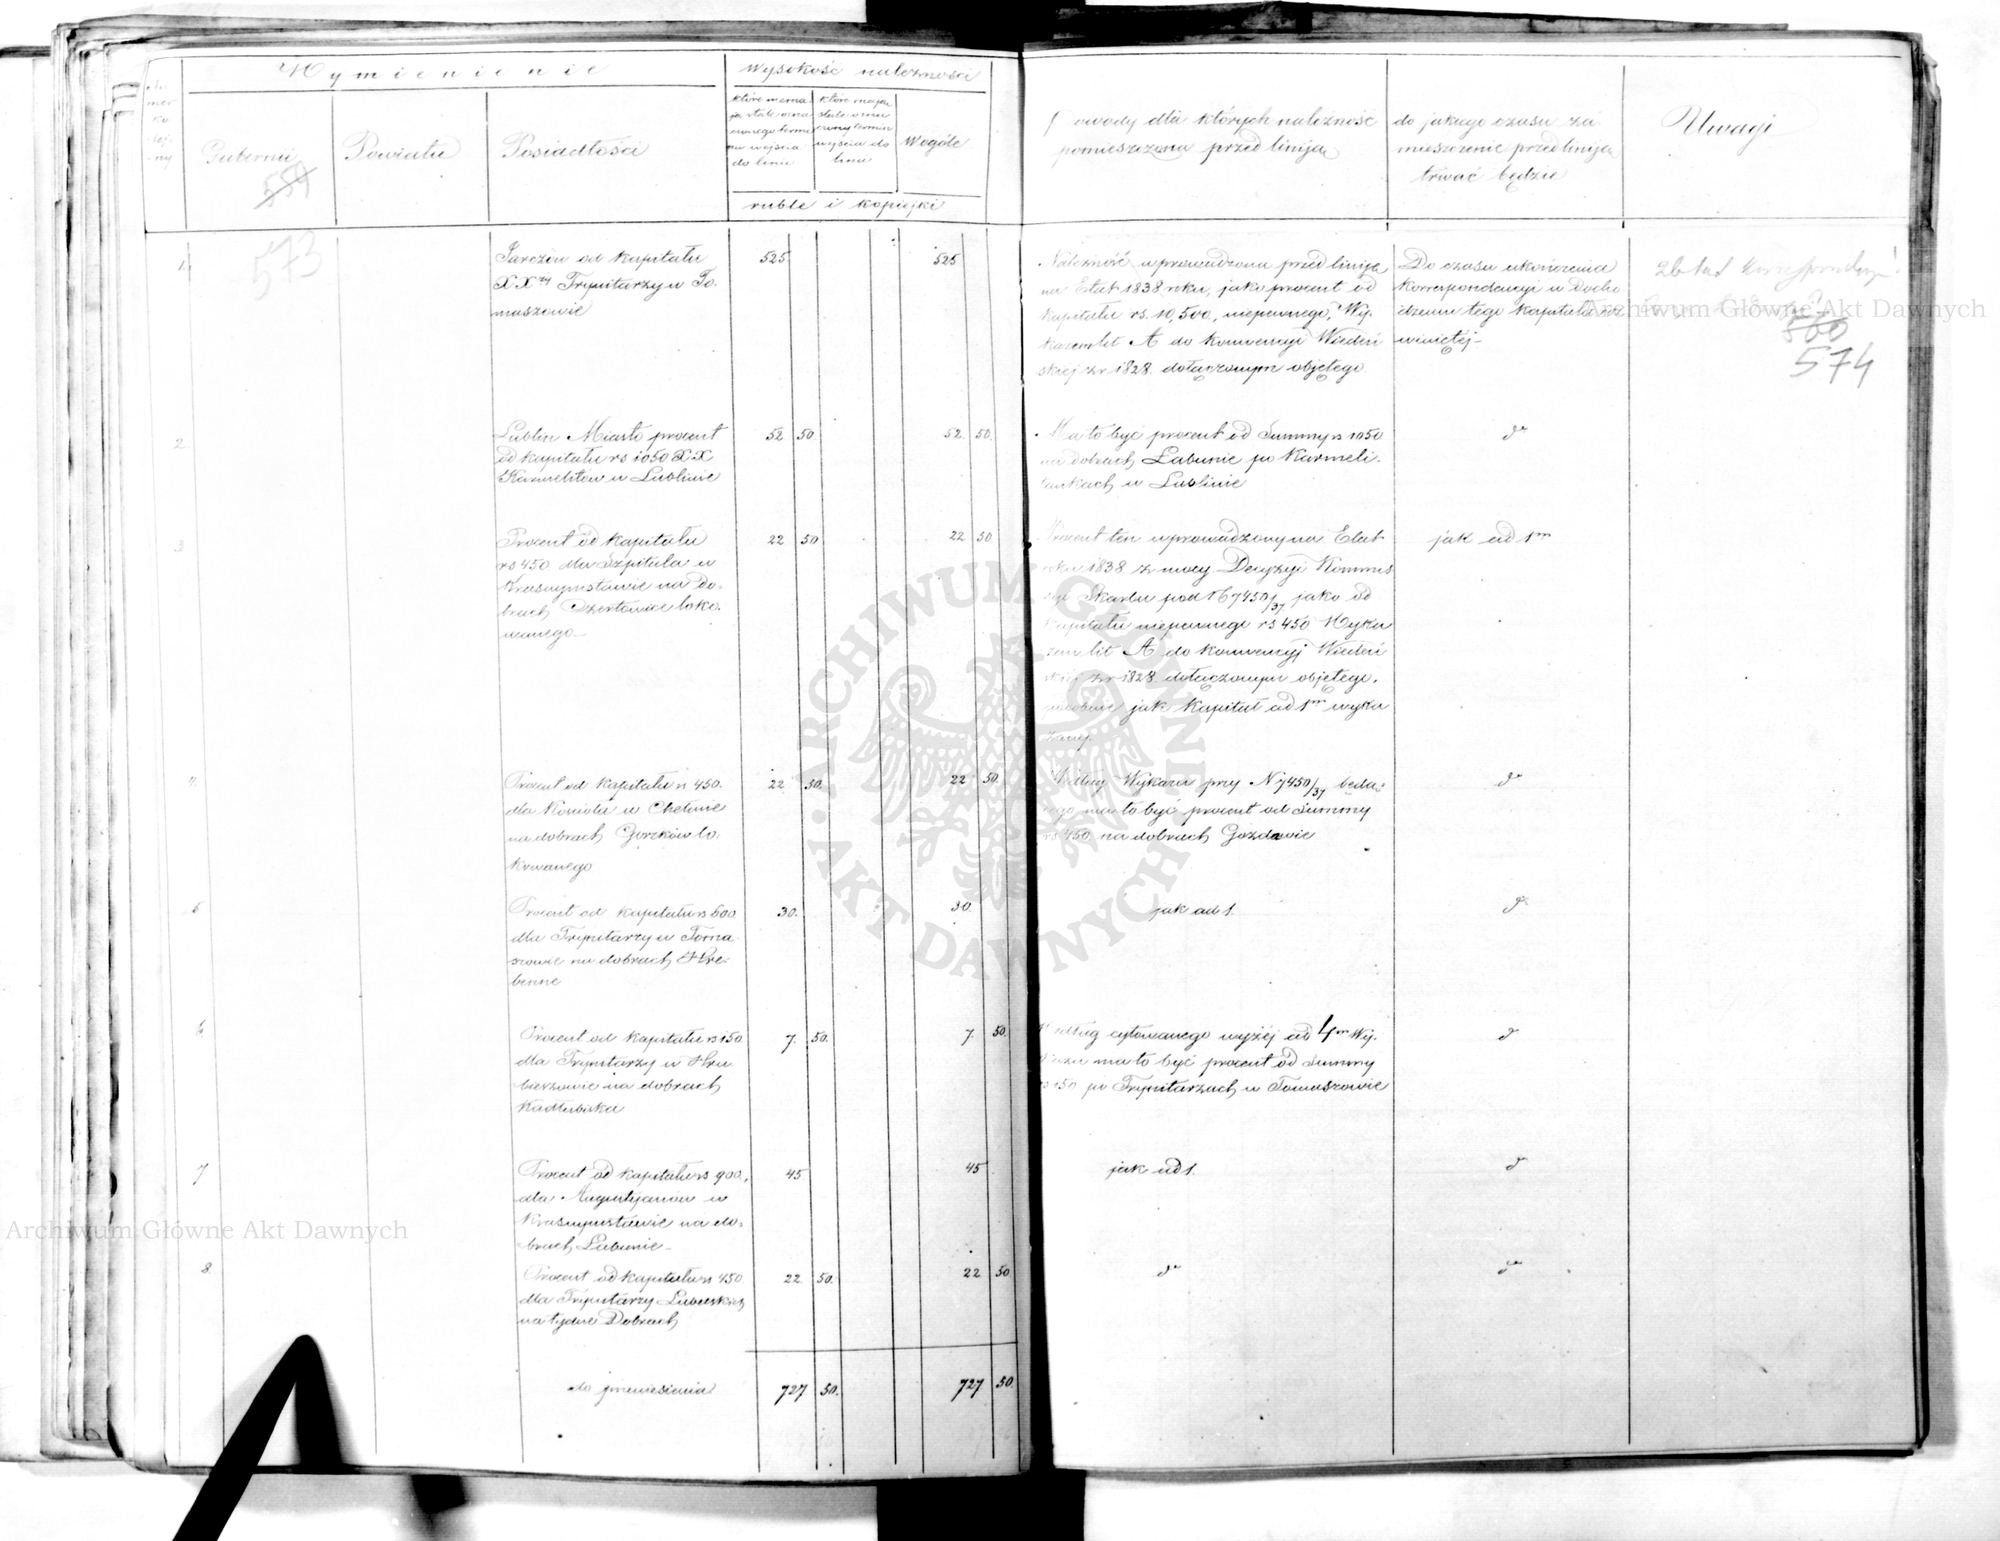 Numer kolejny
Wymienienie
Wysokość należności
Gubernii
Powiatu
Posiadłości
które niema
ją stale ozna
czonego termi
nu wejścia
do linii
które mają
stale ozna
czony termin
wejścia do
linii
Wogóle
ruble i kopiejki
Powody dla których należność
pomieszczona przed liniją
do jakiego czasu za
mieszczenie przed liniją
trwać będzie
Uwagi
559
573
560
574
1.
Jarczów od kapitału
XX Trynitarzy w To.
maszowie
525.
525
Należność wprowadzona przed liniją
na Etat 1838 roku, jako procent od
kapitału rs. 10,500, niepewnego, Wy.
kazem lit A do Konwencyi Wiedeń
skiej z r 1828 dołączonym objętego
Do czasu ukończenia
korrespondencyi w docho
dzeniu tego kapitału roz
winiętej.
2.
Lublin Miasto procent
od kapitału rs 1050 XX
Karmelitów w Lublinie
52 50.
52. 50.
Ma to być procent od Summy rs 1050
na dobrach Łabunie po Karmeli.
tankach w Lublinie
do
3
Procent od kapitału
rs 450 dla Szpitala w
Krasnymstawie na Do.
brach loko.
wanego.
22 50
22 50
Procent ten wprowadzony na Etat
roku 1838 z mocy Decyzyi Kommis
syi Skarbu pod N 67450/37 jako od
kapitału niepewnego rs 450 Wyka
zem lit A do Konwencyi Wiedeń
skiej z r 1828 dołączonym objętego.
podobnie jak kapitał ad 1m wyka
zanej.
jak ad 1m
4.
Procent od kapitału rs 450.
dla Kościoła w Chełmie
na dobrach Gorzków lo.
kowanego
22 50.
22 50.
Według Wykazu przy N 7450/37 będą.
cego ma to być procent od Summy
rs 450 na dobrach Gozdowie
do
5
Procent od kapitału rs 600
dla Trynitarzy w Toma.
szowie na dobrach Hre.
benne
30.
30.
jak ad 1.
do
6
Procent od kapitału rs 150
dla Trynitarzy w Hru
bieszowie na dobrach
Kadłubiska
7. 50.
7. 50.
Według cytowanego wyżej ad 4m Wy.
kazu ma to być procent od Summy
rs 150 po Trynitarzach w Tomaszowie
do
7
Procent od kapitału rs 900.,
dla Augustyjanów w
Krasnymstawie na do.
brach Łabunie.
45
45
jak ad 1.
do
8
Procent od kapitału rs 450
dla Trynitarzy Lubelskich
na tychże Dobrach
22 50.
22 50
do
do
do przeniesienia
727 50.
727 50.
Archiwum Główne Akt Dawnych
Archiwum Główne Akt Dawnych
ARCHIWUM GŁÓWNE
AKT DAWNYCH